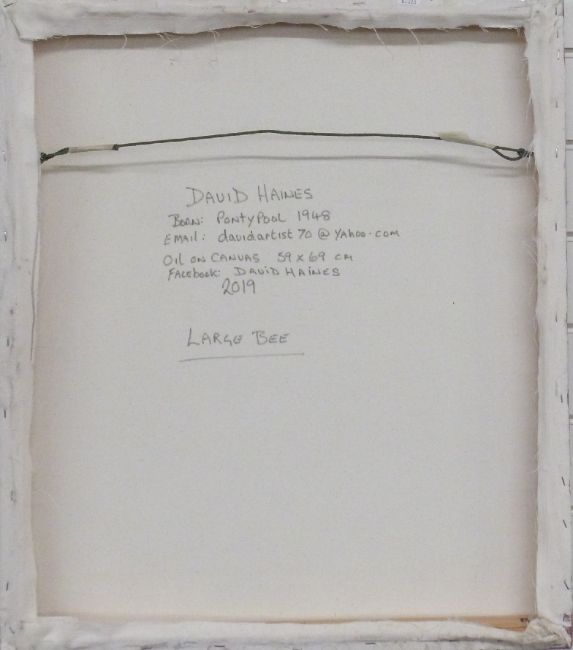 DAVID HAINES
BORN: PONTYPOOL 1948
EMAIL: davidartist70@yahoo.com
OIL ON CANVAS 59 x 69 cm
FACEBOOK: DAVID HAINES
2019
LARGE BEE